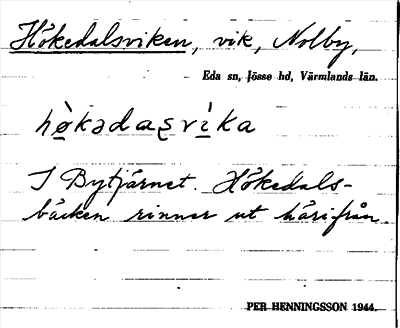 Hökedalsviken, vik, Nolby,
Eda sn, Jösse hd, Värmlands län.
hø̀kədaʂvìka
I Bytjärnet. Hökedals-
bäcken rinner ut härifrån.
PER HENNINGSSON 1944.